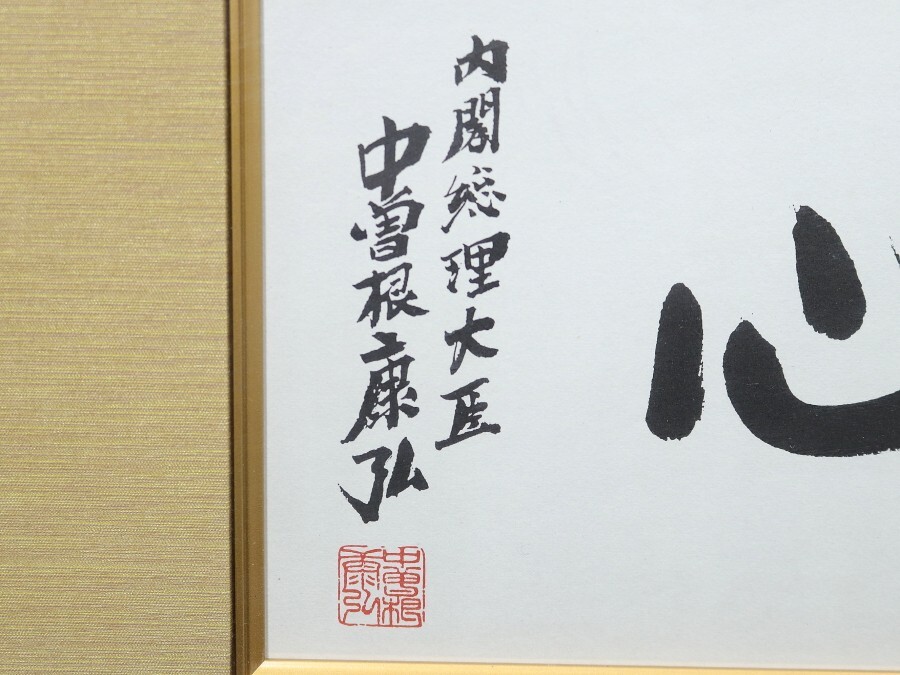 心
内閣総理大臣
中曽根康弘
中曽根康弘